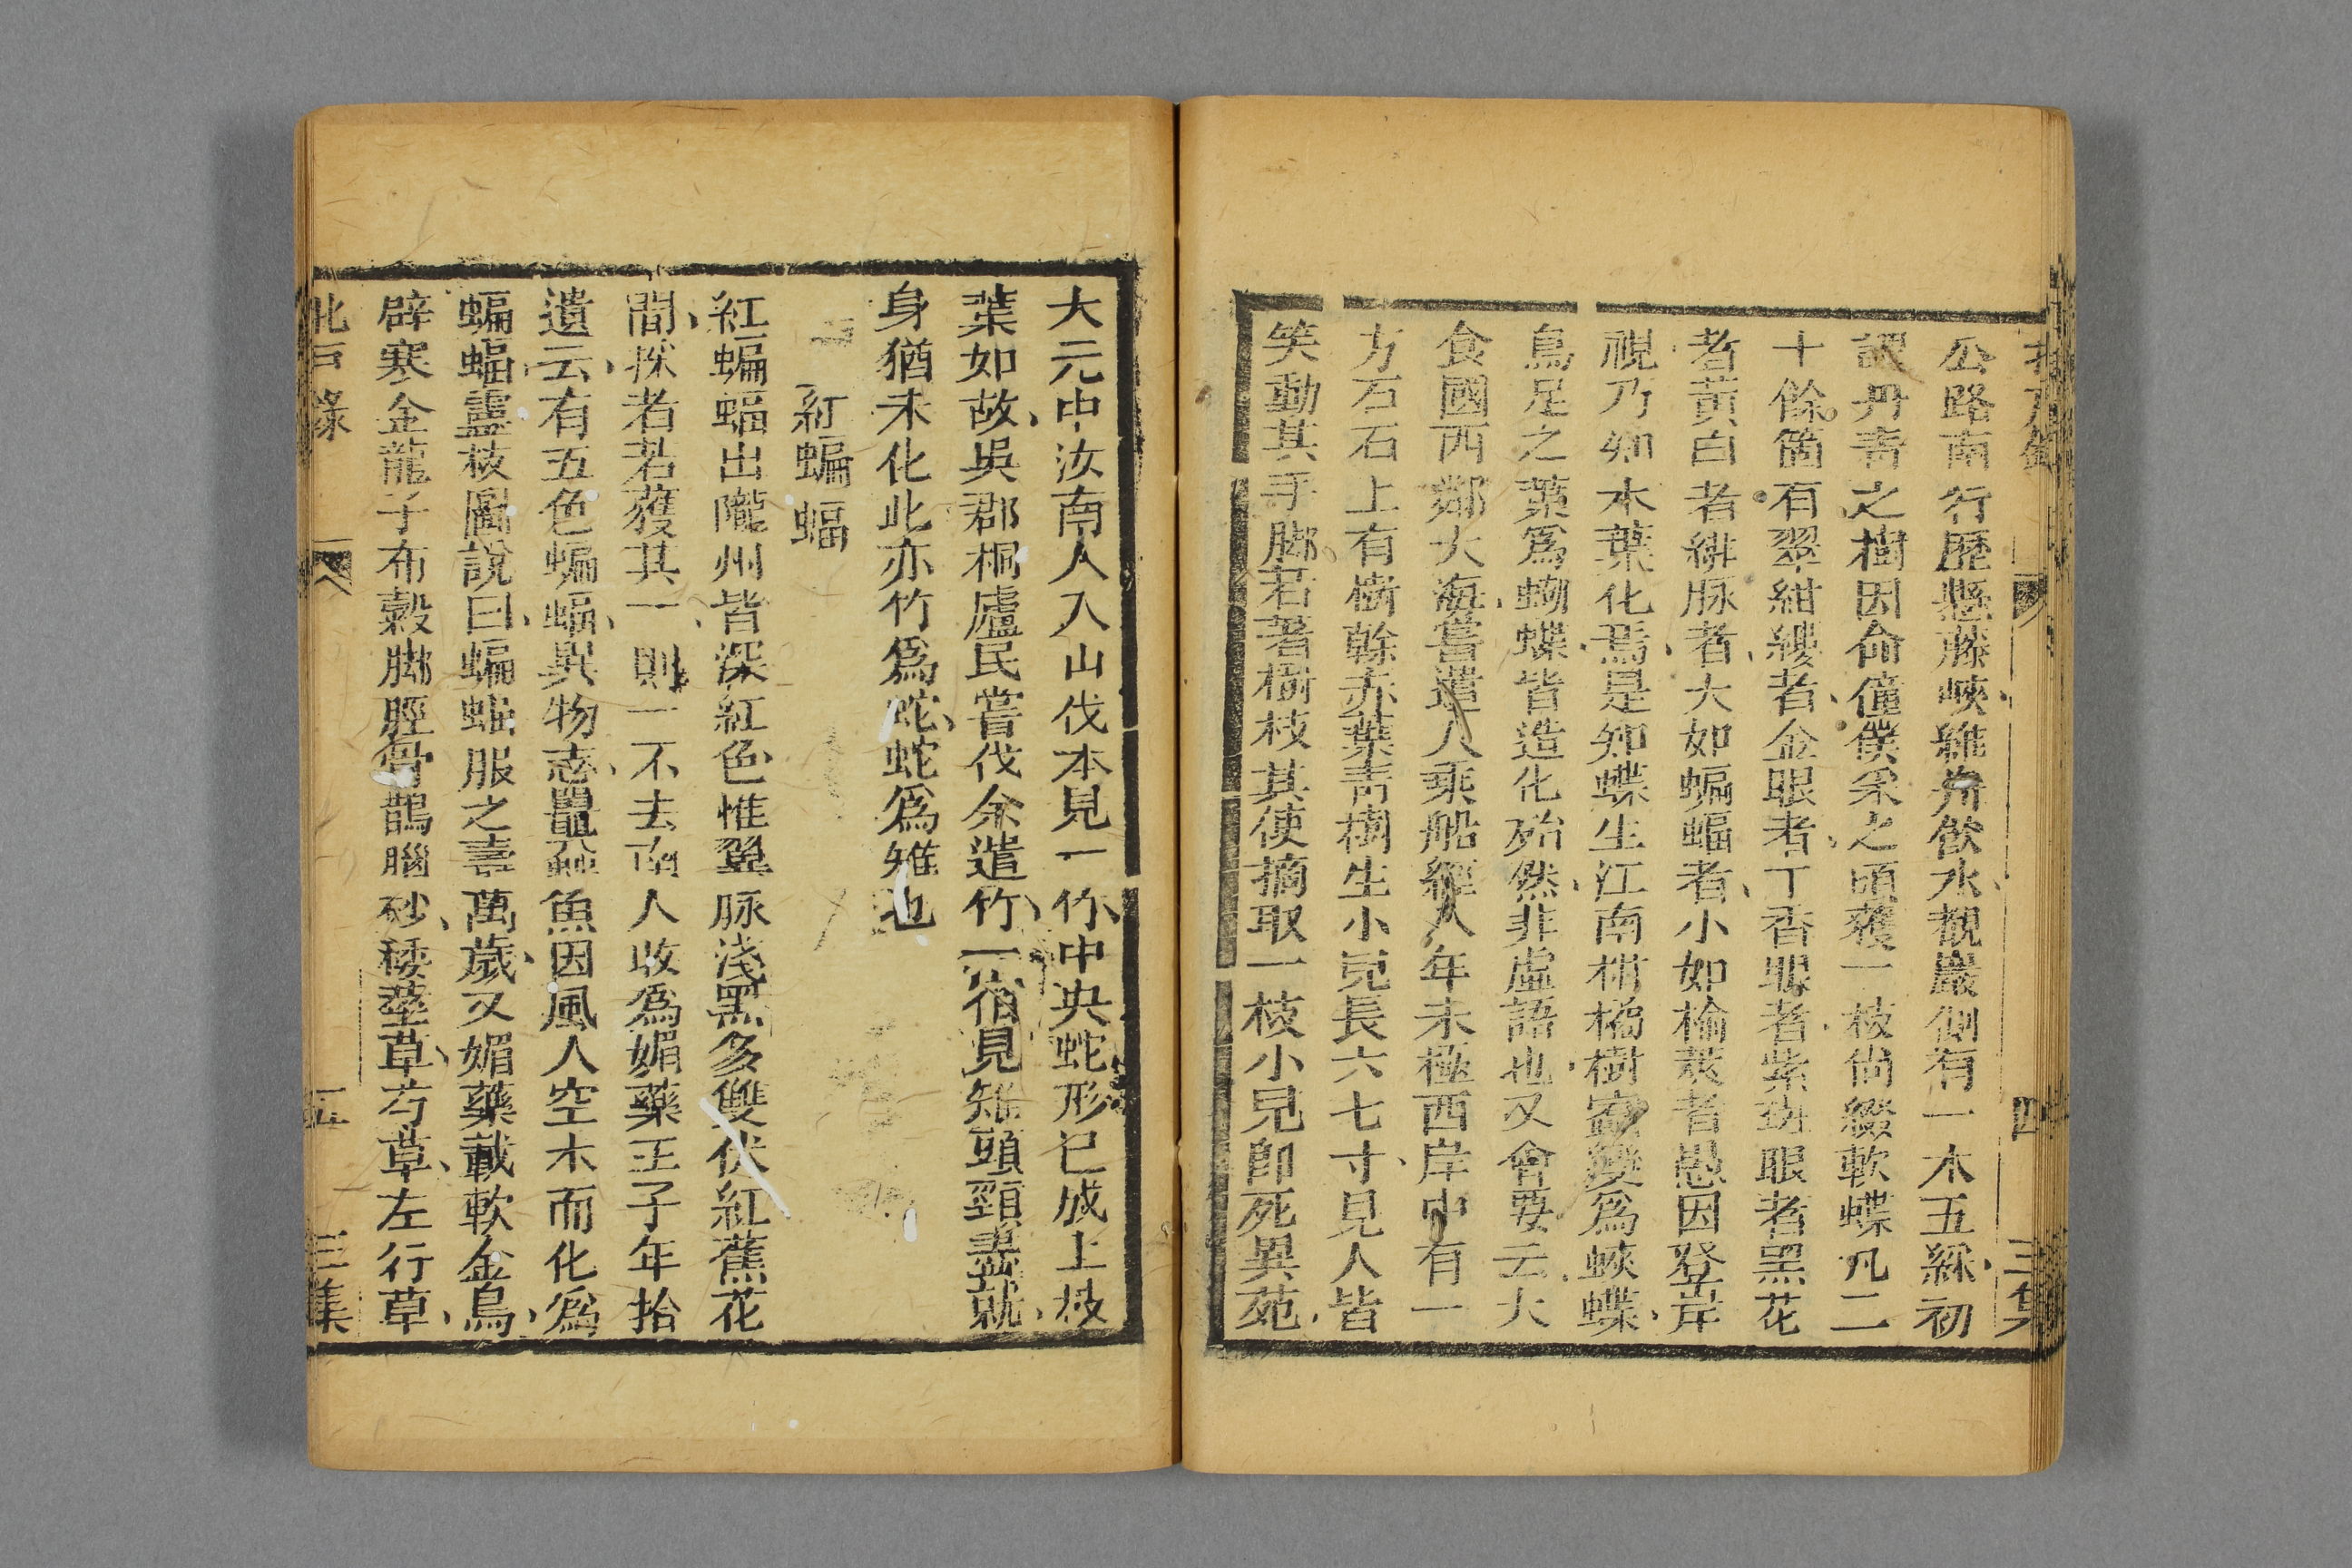 公路南行歷懸藤峽維舟飲水覩巖側有一木五綵初
謂丹青之樹因命僮僕采之頃獲一枝尚綴軟蝶凡二
十餘箇有翠紺縷者金眼者丁香眼者紫斑眼者黑花
者黃白者緋脉者大如蝙蝠者小如榆莢者愚因登岸
視乃知木葉化焉是知蝶生江南柑橘樹蠹變爲蛺蝶
烏足之葉爲蝴蝶皆造化殆然非虛語也又會要云大
食國西鄰大海嘗遣人乘船經八年未極西岸中有一
方石石上有樹幹赤葉青樹生小兒長六七寸見人皆
笑動其手脚若著樹枝其使摘取一枝小兒即死異苑
四
三集
大元中汝南人入山伐本見一竹中央蛇形已成上枝
葉如故吳郡桐廬民嘗伐余遣竹一宿見雉頭頸盡就
身猶未化此亦竹爲蛇蛇爲雉也
紅蝙蝠
紅蝙蝠出隴州皆深紅色惟翼脉淺黑多雙伏紅蕉花
間採者若獲其一則一不去南人收爲媚藥王子年拾
遺云有五色蝙蝠異物志鼉魚因風入空木而化爲
蝙蝠靈枝圖說曰蝙蝠服之壽萬歲又媚藥載軟金鳥
辟寒金龍子布穀脚脛骨鵲腦砂俀草芍草左行草
北戸錄
五
三集